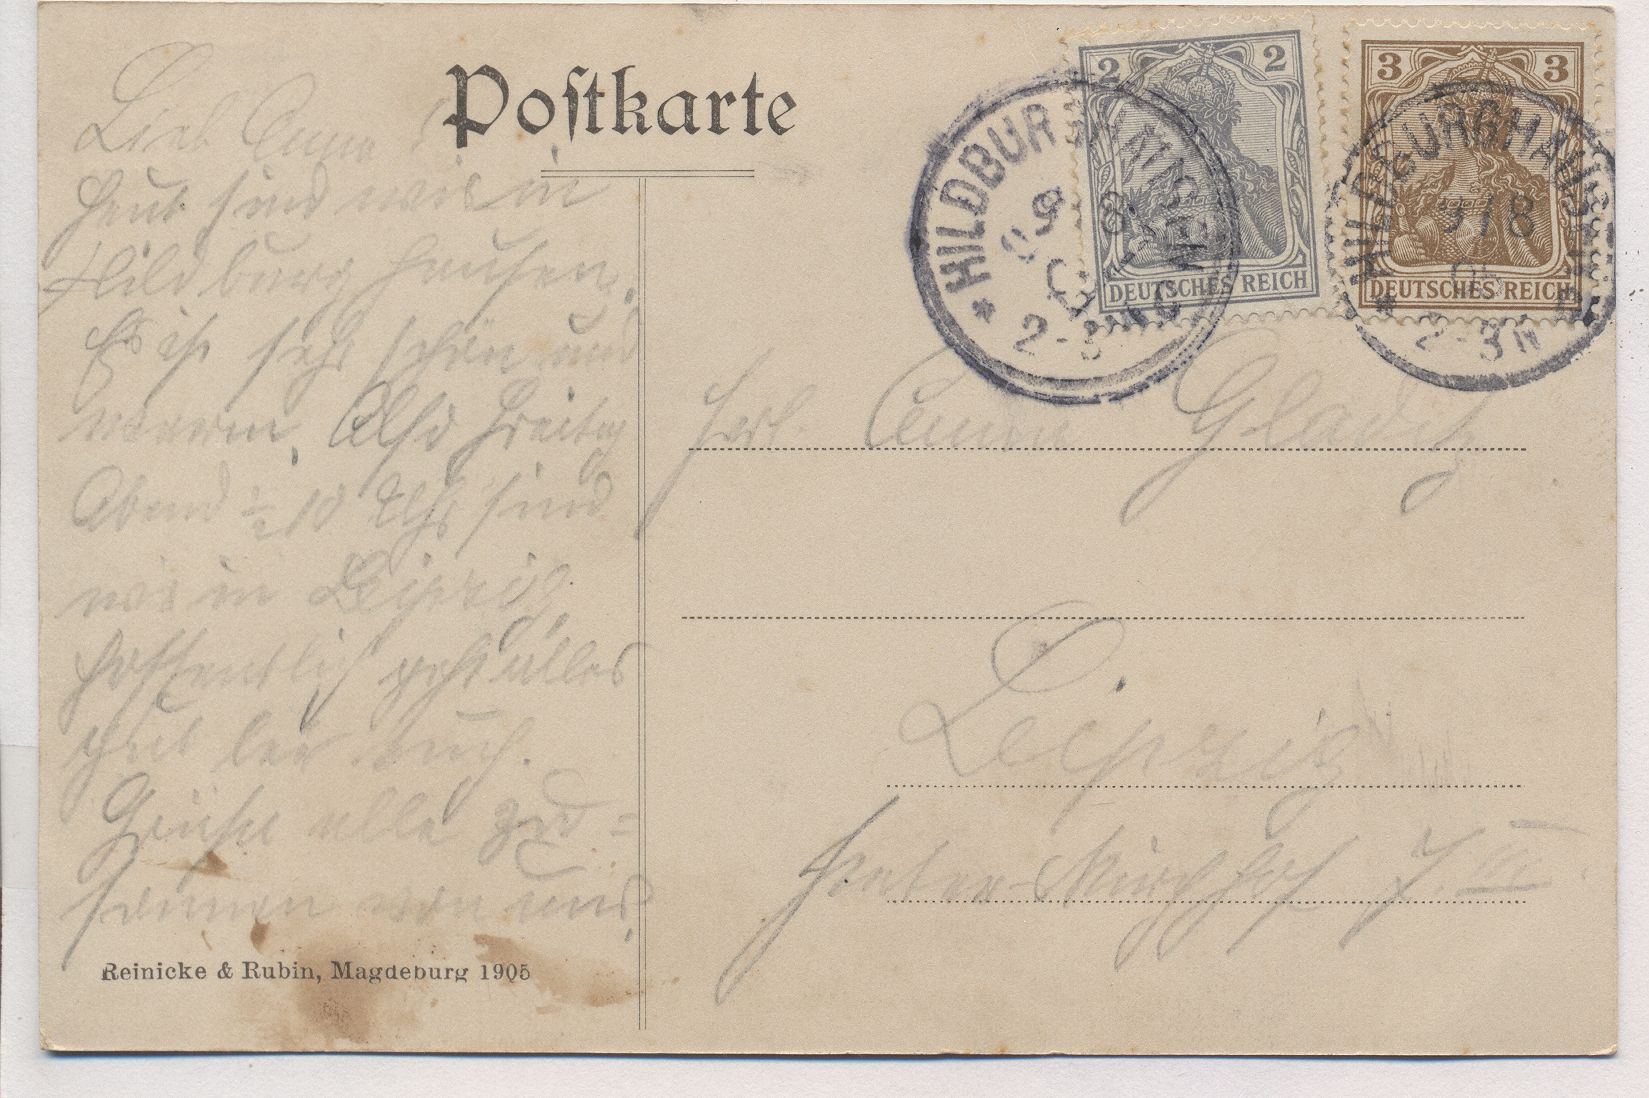 Postkarte
Lieb Anna!
Heut sind wir in
Hildburghausen.
Es ist sehr schön und
warm, Also Freitag
Abend ½ 10 Uhr sind
wir in Leipzig,
hoffentlich geht alles
gut bei euch.
Grüße alle zu=
sammen von uns.
Reinicke & Rubin, Magdeburg 1905
2 2
DEUTSCHES REICH
3 3
DEUTSCHES REICH
* HILDBURGHAUSEN
9 8
2-3N
* HILDBURGHAUSEN
9/8
05
2-3N
Frl. Anna Gladitz
Leipzig
7. III.